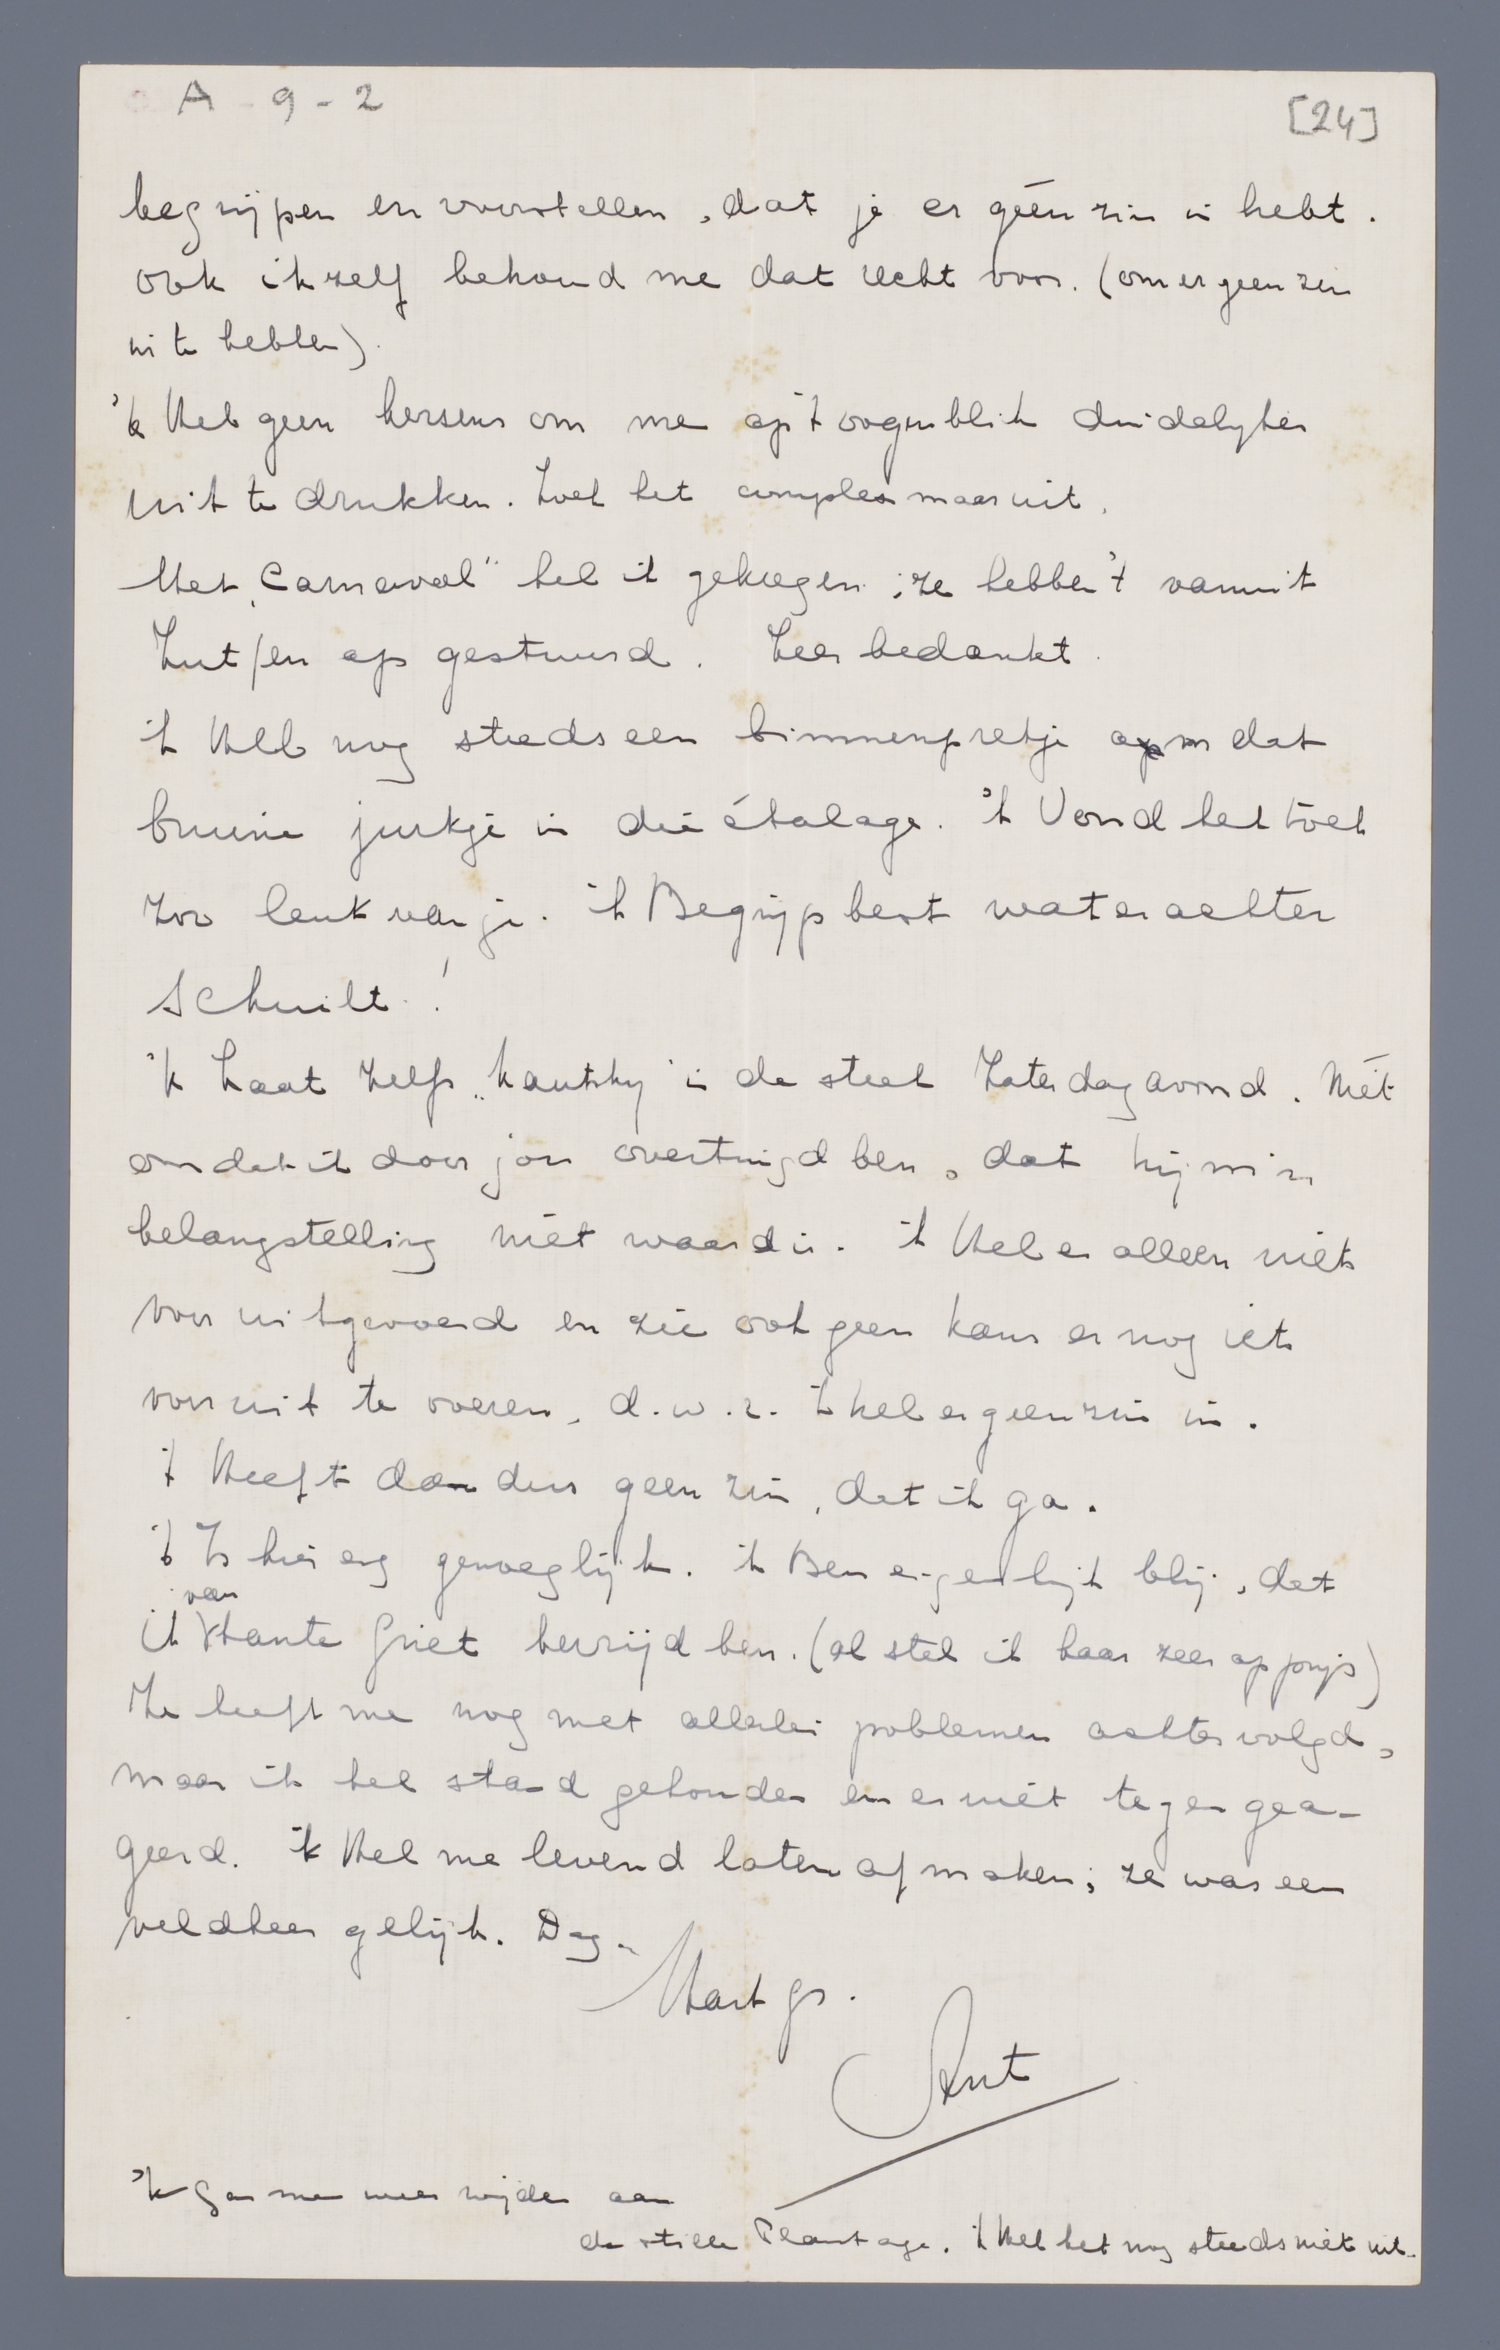 A - 9 - 2
[24]
begrijpen en voorstellen, dat je er géén zin in hebt.
ook ikzelf behoud me dat recht voor. (om er geen zin
in te hebben).
'k Heb geen hersens om me op 't oogenblik duidelyker
uit te drukken. Zoek het complex maar uit.
Het „Carnaval" heb ik gekregen; ze hebben 't vanuit
Zutfen op gestuurd. Zeer bedankt.
ik Heb nog steeds een binnenpretje om dat
bruine jurkje in die étalage. 'k Vond het tóch
zoo leuk van je. ik Begrijp best wat er achter
schuilt!
'k Laat zelfs „Kautsky" in de steek Zaterdagavond. Niét
omdat ik door jou overtuigd ben, dat hij m'n
belangstelling niet waard is. ik Heb er alleen niets
voor uitgevoerd en zie ook geen kans er nog iets
voor uit te voeren, d.w.z. ik heb er geen zin in.
't Heeft dan dus geen zin, dat ik ga.
't Is hier erg genoeglijk. ik Ben eigenlijk blij, dat
ik van tante Griet bevrijd ben. (al stel ik haar zeer op prijs)
Ze heeft me nog met allerlei problemen achtervolgd,
maar ik heb stand gehouden en er niét tegen gea-
geerd. ik Heb me levend laten afmaken; ze was een
veldheer gelijk. Dag.
Hart gr.
Ant
'k Ga me weer wijden aan
de stille Plantage. ik Heb het nog steeds niét uit.